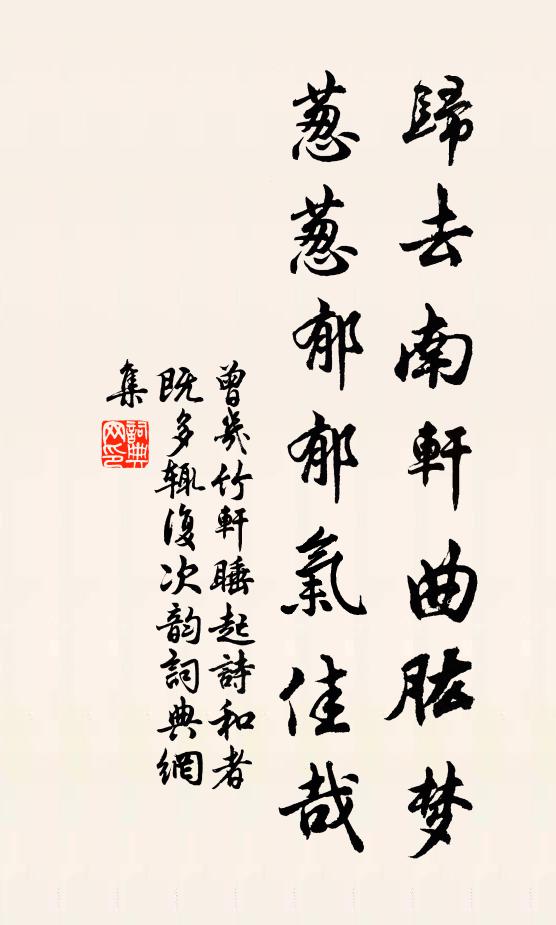 歸去南軒曲肱梦
葱葱郁郁氣佳哉
曾幾竹軒睡起詩和者
既多辄復次韵詞典網
集
詞典
网印